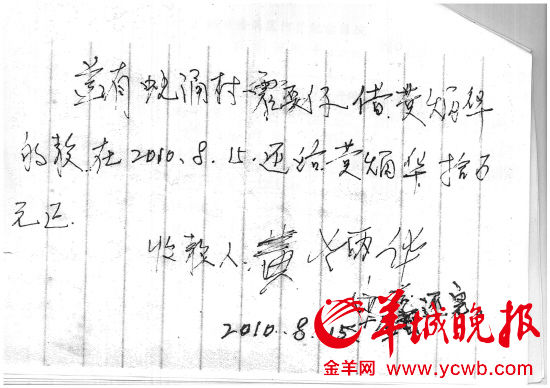 兹有蚝涌村 借黄炳华
的款在2010.8.15.还给黄炳华拾万
元正.
收款人:黄炳华
还完
2010.8.15.
羊城晚报
金羊网 www.ycwb.com